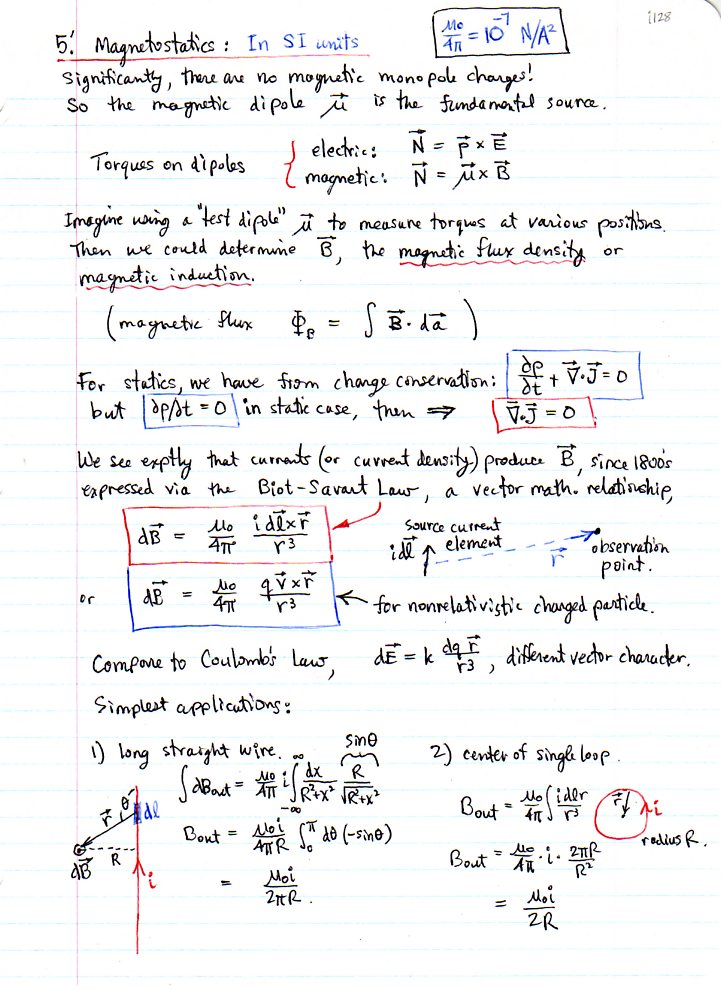 i128
5! Magnetostatics: In SI units
μ₀/4π = 10⁻⁷ N/A²
Significantly, there are no magnetic monopole charges!
So the magnetic dipole μ⃗ is the fundamental source.
Torques on dipoles { electric: N⃗ = p⃗ × E⃗
magnetic: N⃗ = μ⃗ × B⃗
Imagine using a "test dipole" μ⃗ to measure torques at various positions.
Then we could determine B⃗, the magnetic flux density or
magnetic induction.
(magnetic flux Φ_B = ∫ B⃗ · da⃗ )
For statics, we have from charge conservation: ∂ρ/∂t + ∇⃗·J⃗ = 0
but ∂ρ/∂t = 0 in static case, then ⇒ ∇⃗·J⃗ = 0
We see exptly that currents (or current density) produce B⃗, since 1800's
expressed via the Biot-Savart Law, a vector math. relationship,
dB⃗ = μ₀/4π i dl⃗ × r⃗ / r³
source current
element
i dl⃗
r⃗
observation
point.
or dB⃗ = μ₀/4π q v⃗ × r⃗ / r³ ← for nonrelativistic charged particle.
Compare to Coulomb's Law, dE⃗ = k dq r⃗ / r³, different vector character.
Simplest applications:
1) long straight wire.
∫dB_out = μ₀/4π i ∫_{-∞}^{∞} dx/(R²+x²) R/√(R²+x²)
sinθ
B_out = μ₀i/4πR ∫₀^π dθ (-sinθ)
= μ₀i/2πR .
θ
r⃗
dl
dB⃗
R
i
2) center of single loop.
B_out = μ₀/4π ∫ i dl r / r³
r⃗
i
radius R.
B_out = μ₀/4π · i · 2πR/R²
= μ₀i/2R